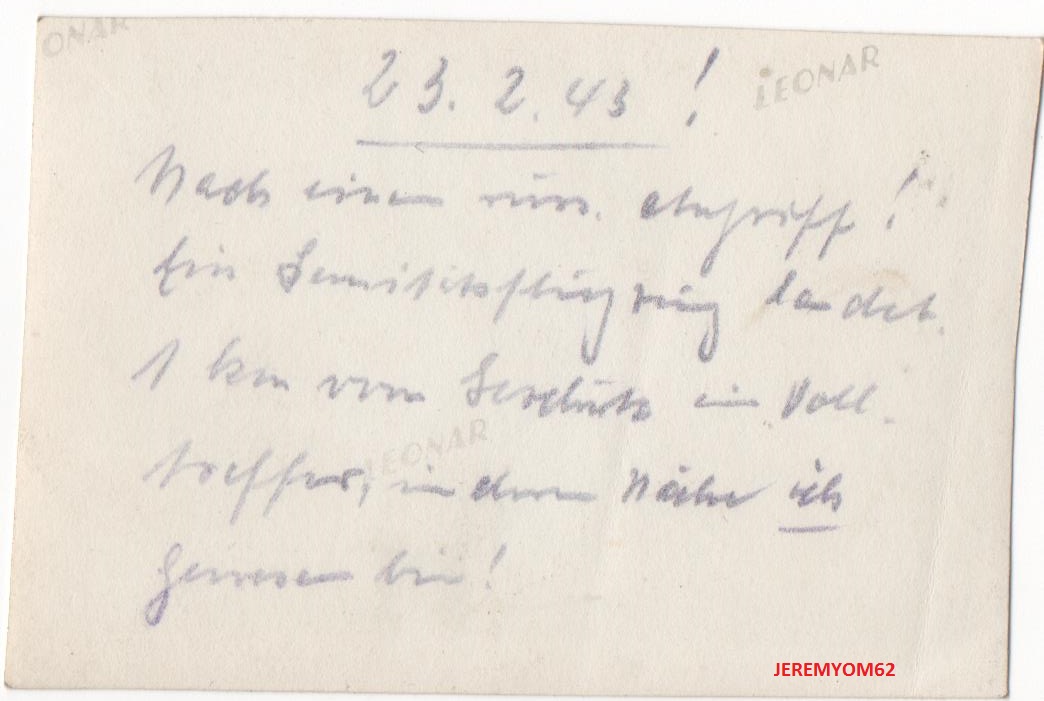 ONAR
LEONAR
23. 2. 43 !
Nach einem russ. Angriff !
Ein Sanitätsflugzeug landet.
1 km vom Geschütz ein Voll-
treffer, in deren Nähe ich
gewesen bin!
LEONAR
JEREMYOM62